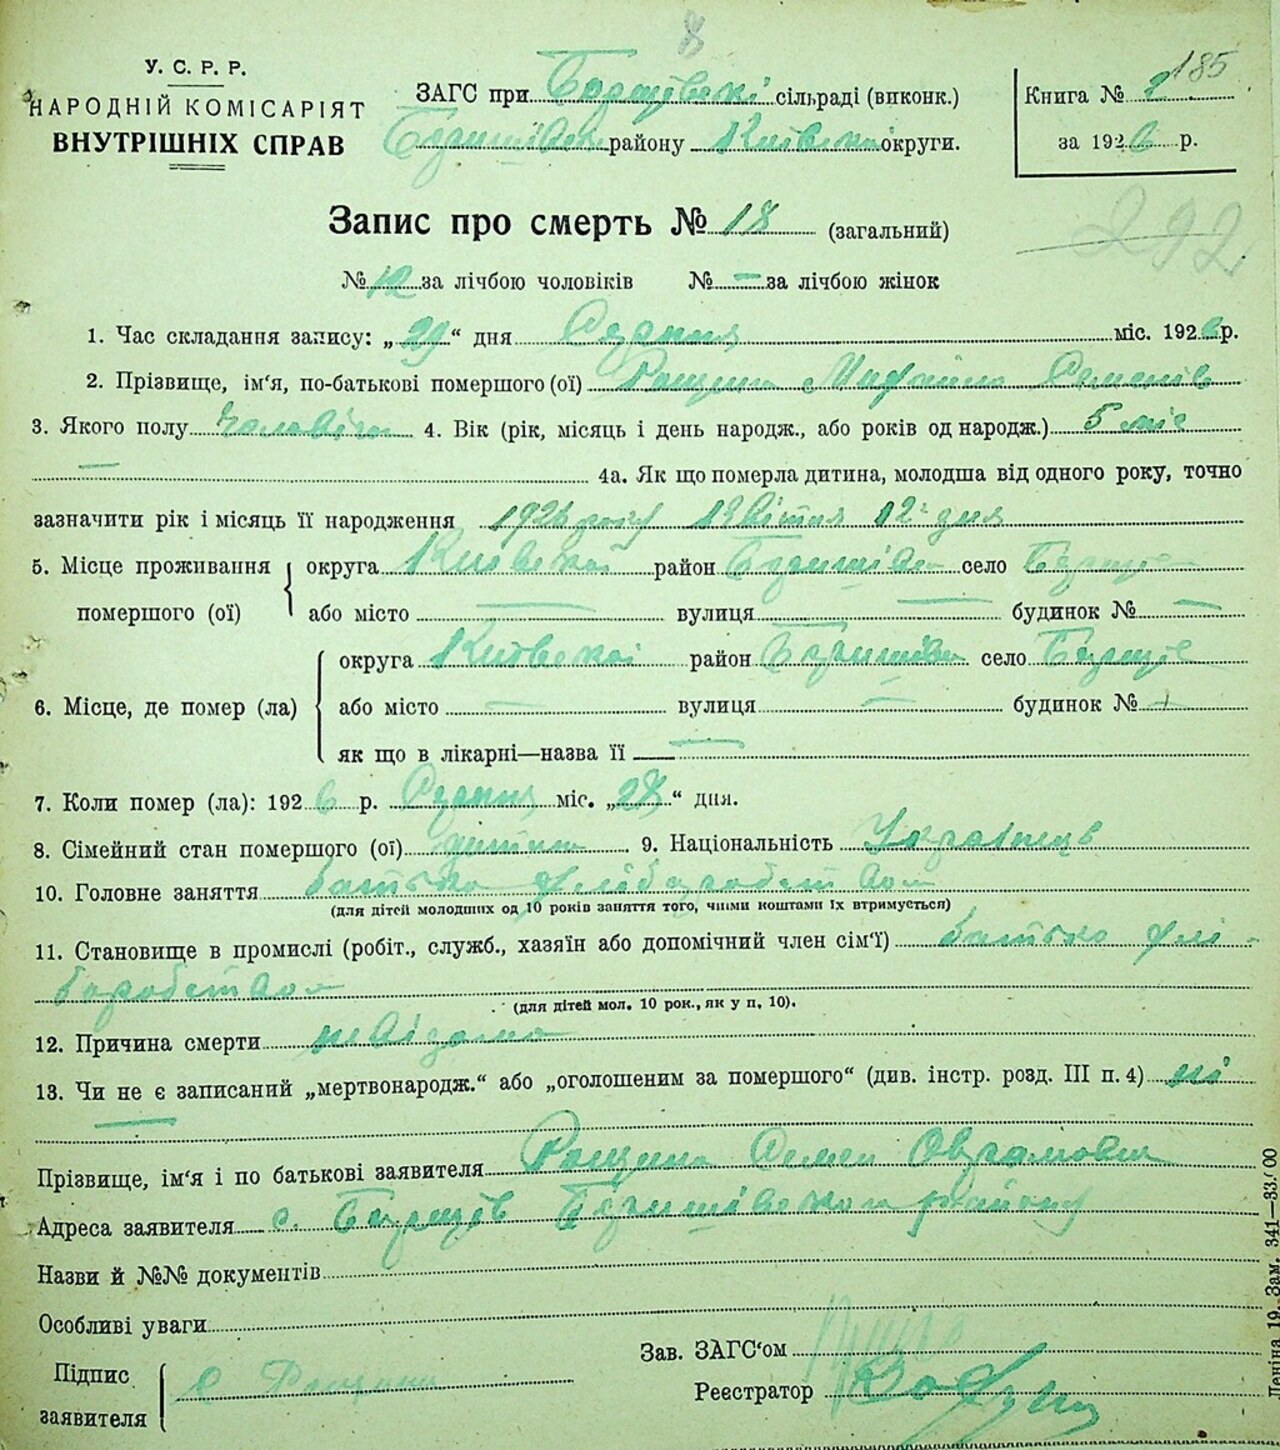 8
У. С. Р. Р.
НАРОДНІЙ КОМІСАРІЯТ
ВНУТРІШНІХ СПРАВ
ЗАГС при Борщівські сільраді (виконк.)
району Київської округи.
185
Книга № 2
за 1926 р.
Запис про смерть № 18 (загальний)
292
№ 12 за лічбою чоловіків № — за лічбою жінок
1. Час складання запису: „29“ дня Серпня міс. 1926 р.
2. Прізвище, ім‘я, по-батькові помершого (ої) Рощина Михайло Семенів
3. Якого полу Чоловіча 4. Вік (рік, місяць і день народж., або років од народж.) 5 міс
— 4а. Як що померла дитина, молодша від одного року, точно
зазначити рік і місяць її народження 1926 року Квітня 12 дня
5. Місце проживання помершого (ої) округа Київської район село
або місто — вулиця — будинок № —
6. Місце, де помер (ла) округа Київської район село
або місто — вулиця — будинок № —
як що в лікарні—назва її —
7. Коли помер (ла): 1926 р. Серпня міс. „28“ дня.
8. Сімейний стан помершого (ої) дитина 9. Національність Українець
10. Головне заняття батько хліборобством
(для дітей молодших од 10 років заняття того, чиїми коштами їх втримується)
11. Становище в промислі (робіт., служб., хазяїн або допомічний член сім‘ї) батько хлі-
боробством
(для дітей мол. 10 рок., як у п. 10).
12. Причина смерти невідома
13. Чи не є записаний „мертвонародж.“ або „оголошеним за помершого“ (див. інстр. розд. III п. 4) ні
—
Прізвище, ім‘я і по батькові заявителя Рощина Семен Оврамович
Адреса заявителя с. району
Назви й №№ документів
Особливі уваги
Зав. ЗАГС‘ом
Підпис заявителя С Рощина
Реєстратор
Леніна 19. Зам. 341—83.000